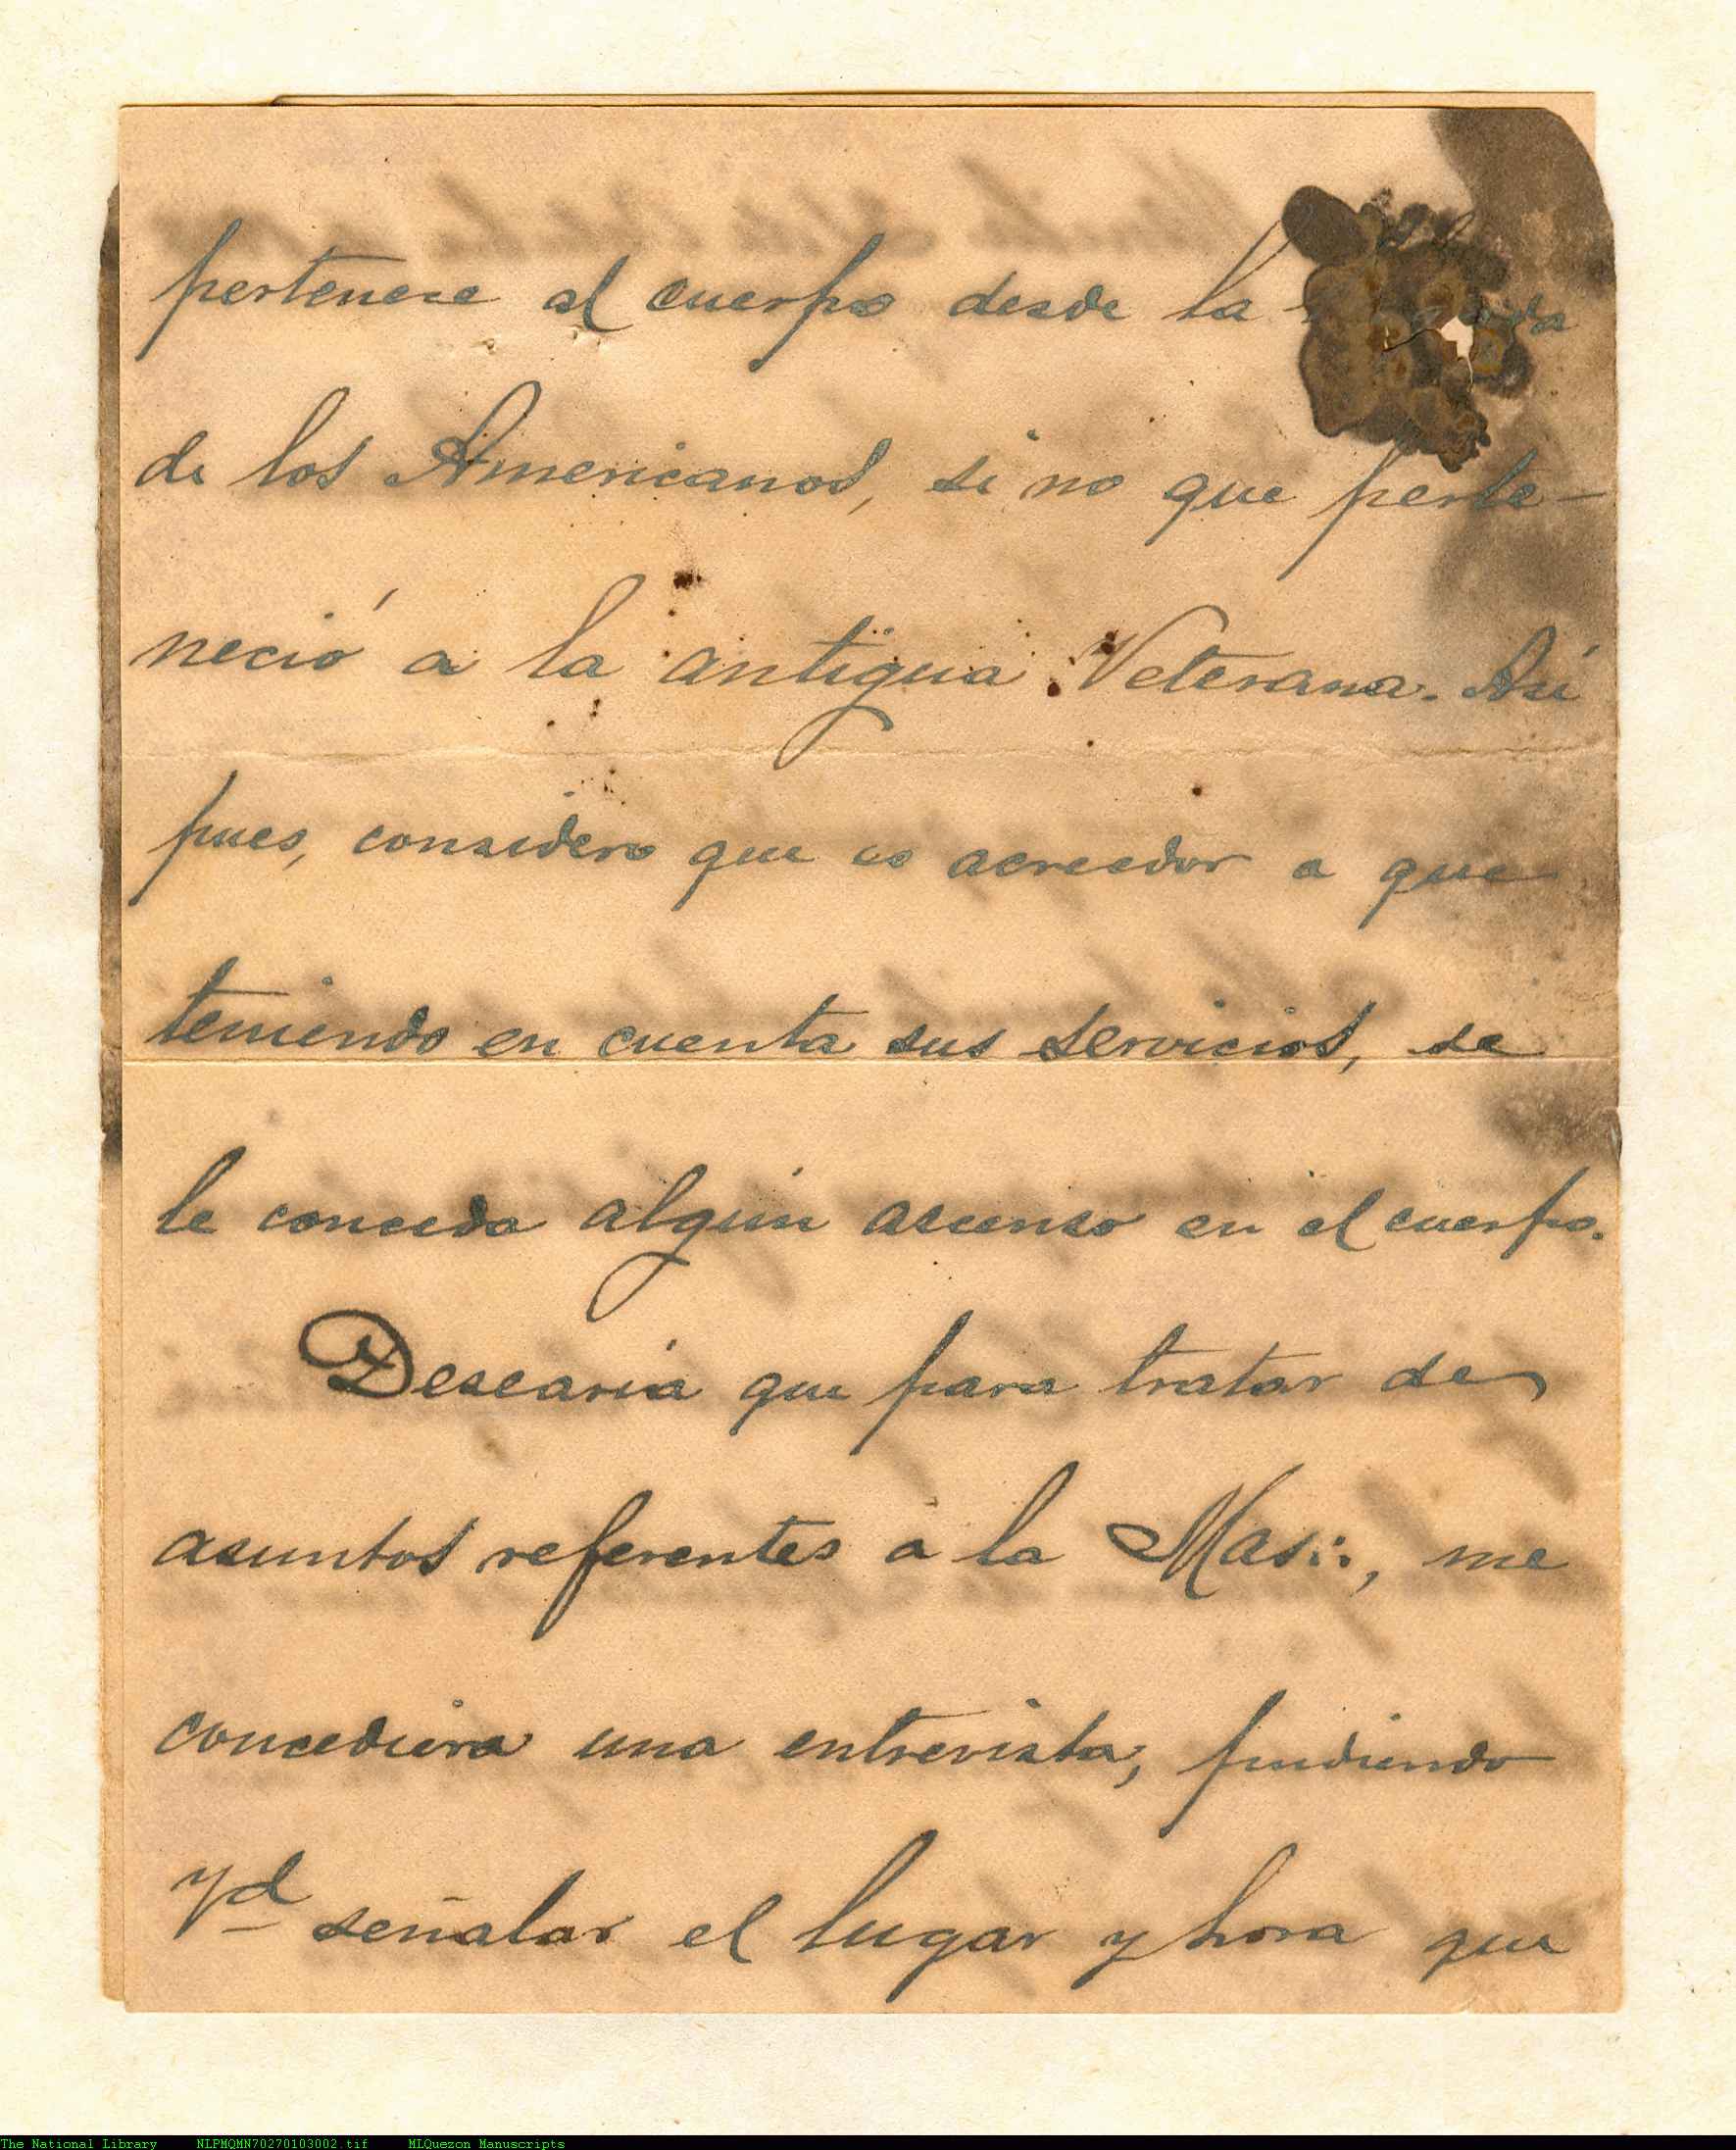 pertenece al cuerpo desde la
de los Americanos, si no que perte-
neció a la antigua Veterana. Así
pues, considero que es acreedor a que
teniendo en cuenta sus servicios, se
le conceda algun ascenso en el cuerpo.
Desearia que para tratar de
asuntos referentes a la Mas∴, me
concediera una entrevista, pudiendo
Vd señalar el lugar y hora que
The National Library NLPMQMN70270103002.tif MLQuezon Manuscripts